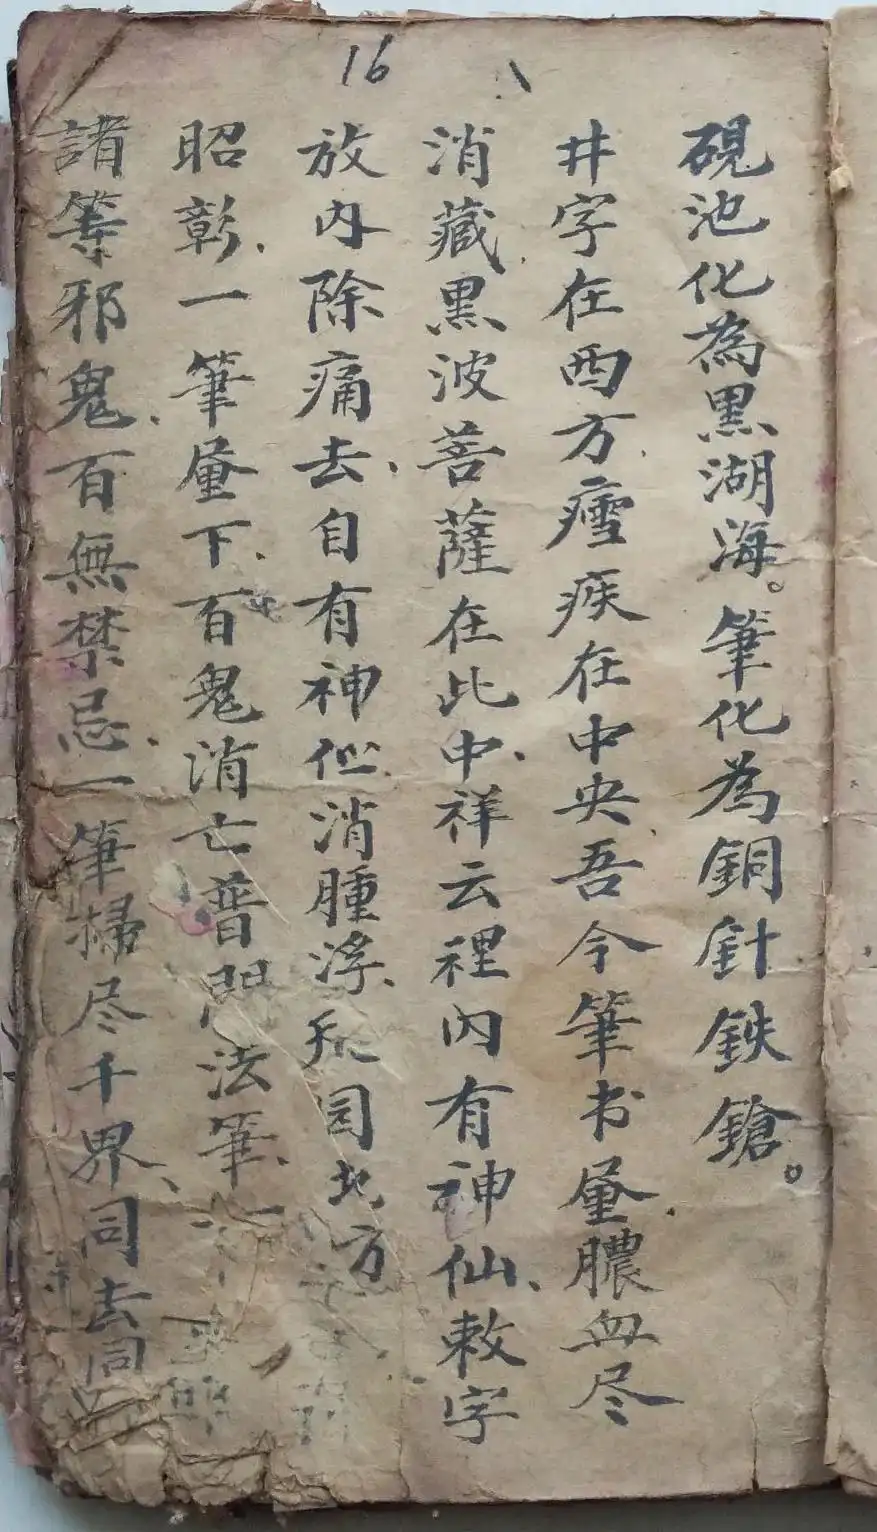 16
硯池化為黑湖海。筆化為銅針鉄鎗。
井字在西方瘧疾在中央吾今筆书量膿血尽
消藏黑波菩薩在此中、祥云裡内有神仙、敕字
放内除痛去、自有神仙消腫浮、园地方
昭彰、一筆量下、百鬼消亡普門法筆、一
諸等邪鬼、百無禁忌、一筆掃尽千界、同去同